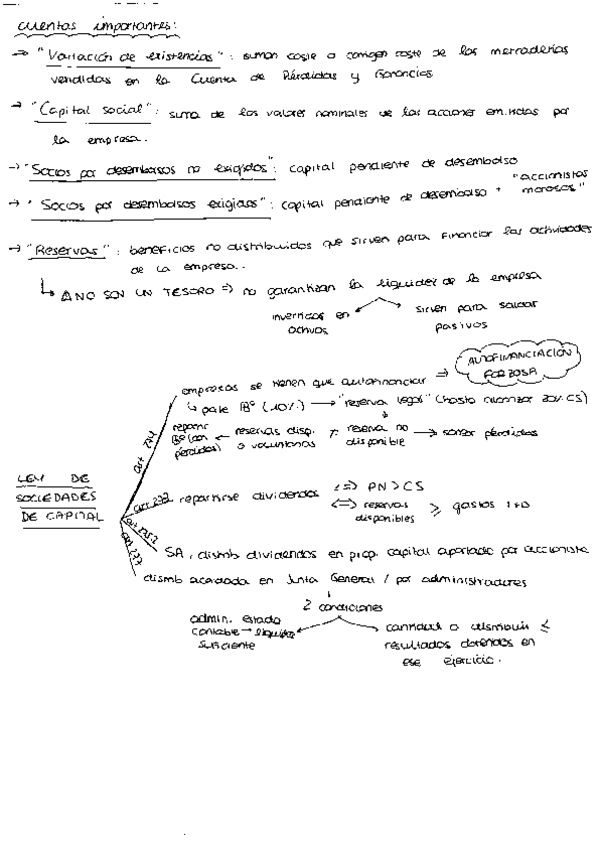 cuentas importantes:
→ "Variación de existencias": suman coste o corrigen coste de las mercaderías
vendidas en la Cuenta de Pérdidas y Ganancias
→ "Capital social": suma de los valores nominales de las acciones emitidas por
la empresa.
→ "Socios por desembolsos no exigidos": capital pendiente de desembolso
→ "Socios por desembolsos exigidos": capital pendiente de desembolso + "accionistas
morosos"
→ "Reservas": beneficios no distribuidos que sirven para financiar las actividades
de la empresa.
↳ NO SON UN TESORO ⇒ no garantizan la liquidez de la empresa
invertidas en
activos
sirven para saldar
pasivos
empresas se tienen que autofinanciar ⇒
AUTOFINANCIACIÓN
FORZOSA
↳ parte Bº (10%) → "reserva legal" (hasta alcanzar 20% CS)
repartir
Bº (con
pérdidas)
← reservas disp.
o voluntarias
≠ reserva no
disponible
→ sanear pérdidas
LEY DE
SOCIEDADES
DE CAPITAL
art 274
art 273 repartirse dividendos
⇔ PN > CS
⇔ reservas
disponibles
≥ gastos I+D
art 275.2
SA, distrib dividendos en prop. capital aportado por accionista
art 277
distrib acordada en Junta General / por administradores
↓
2 condiciones
admin. estado
contable → liquidez
suficiente
cantidad a distribuir ≤
resultados obtenidos en
ese ejercicio.